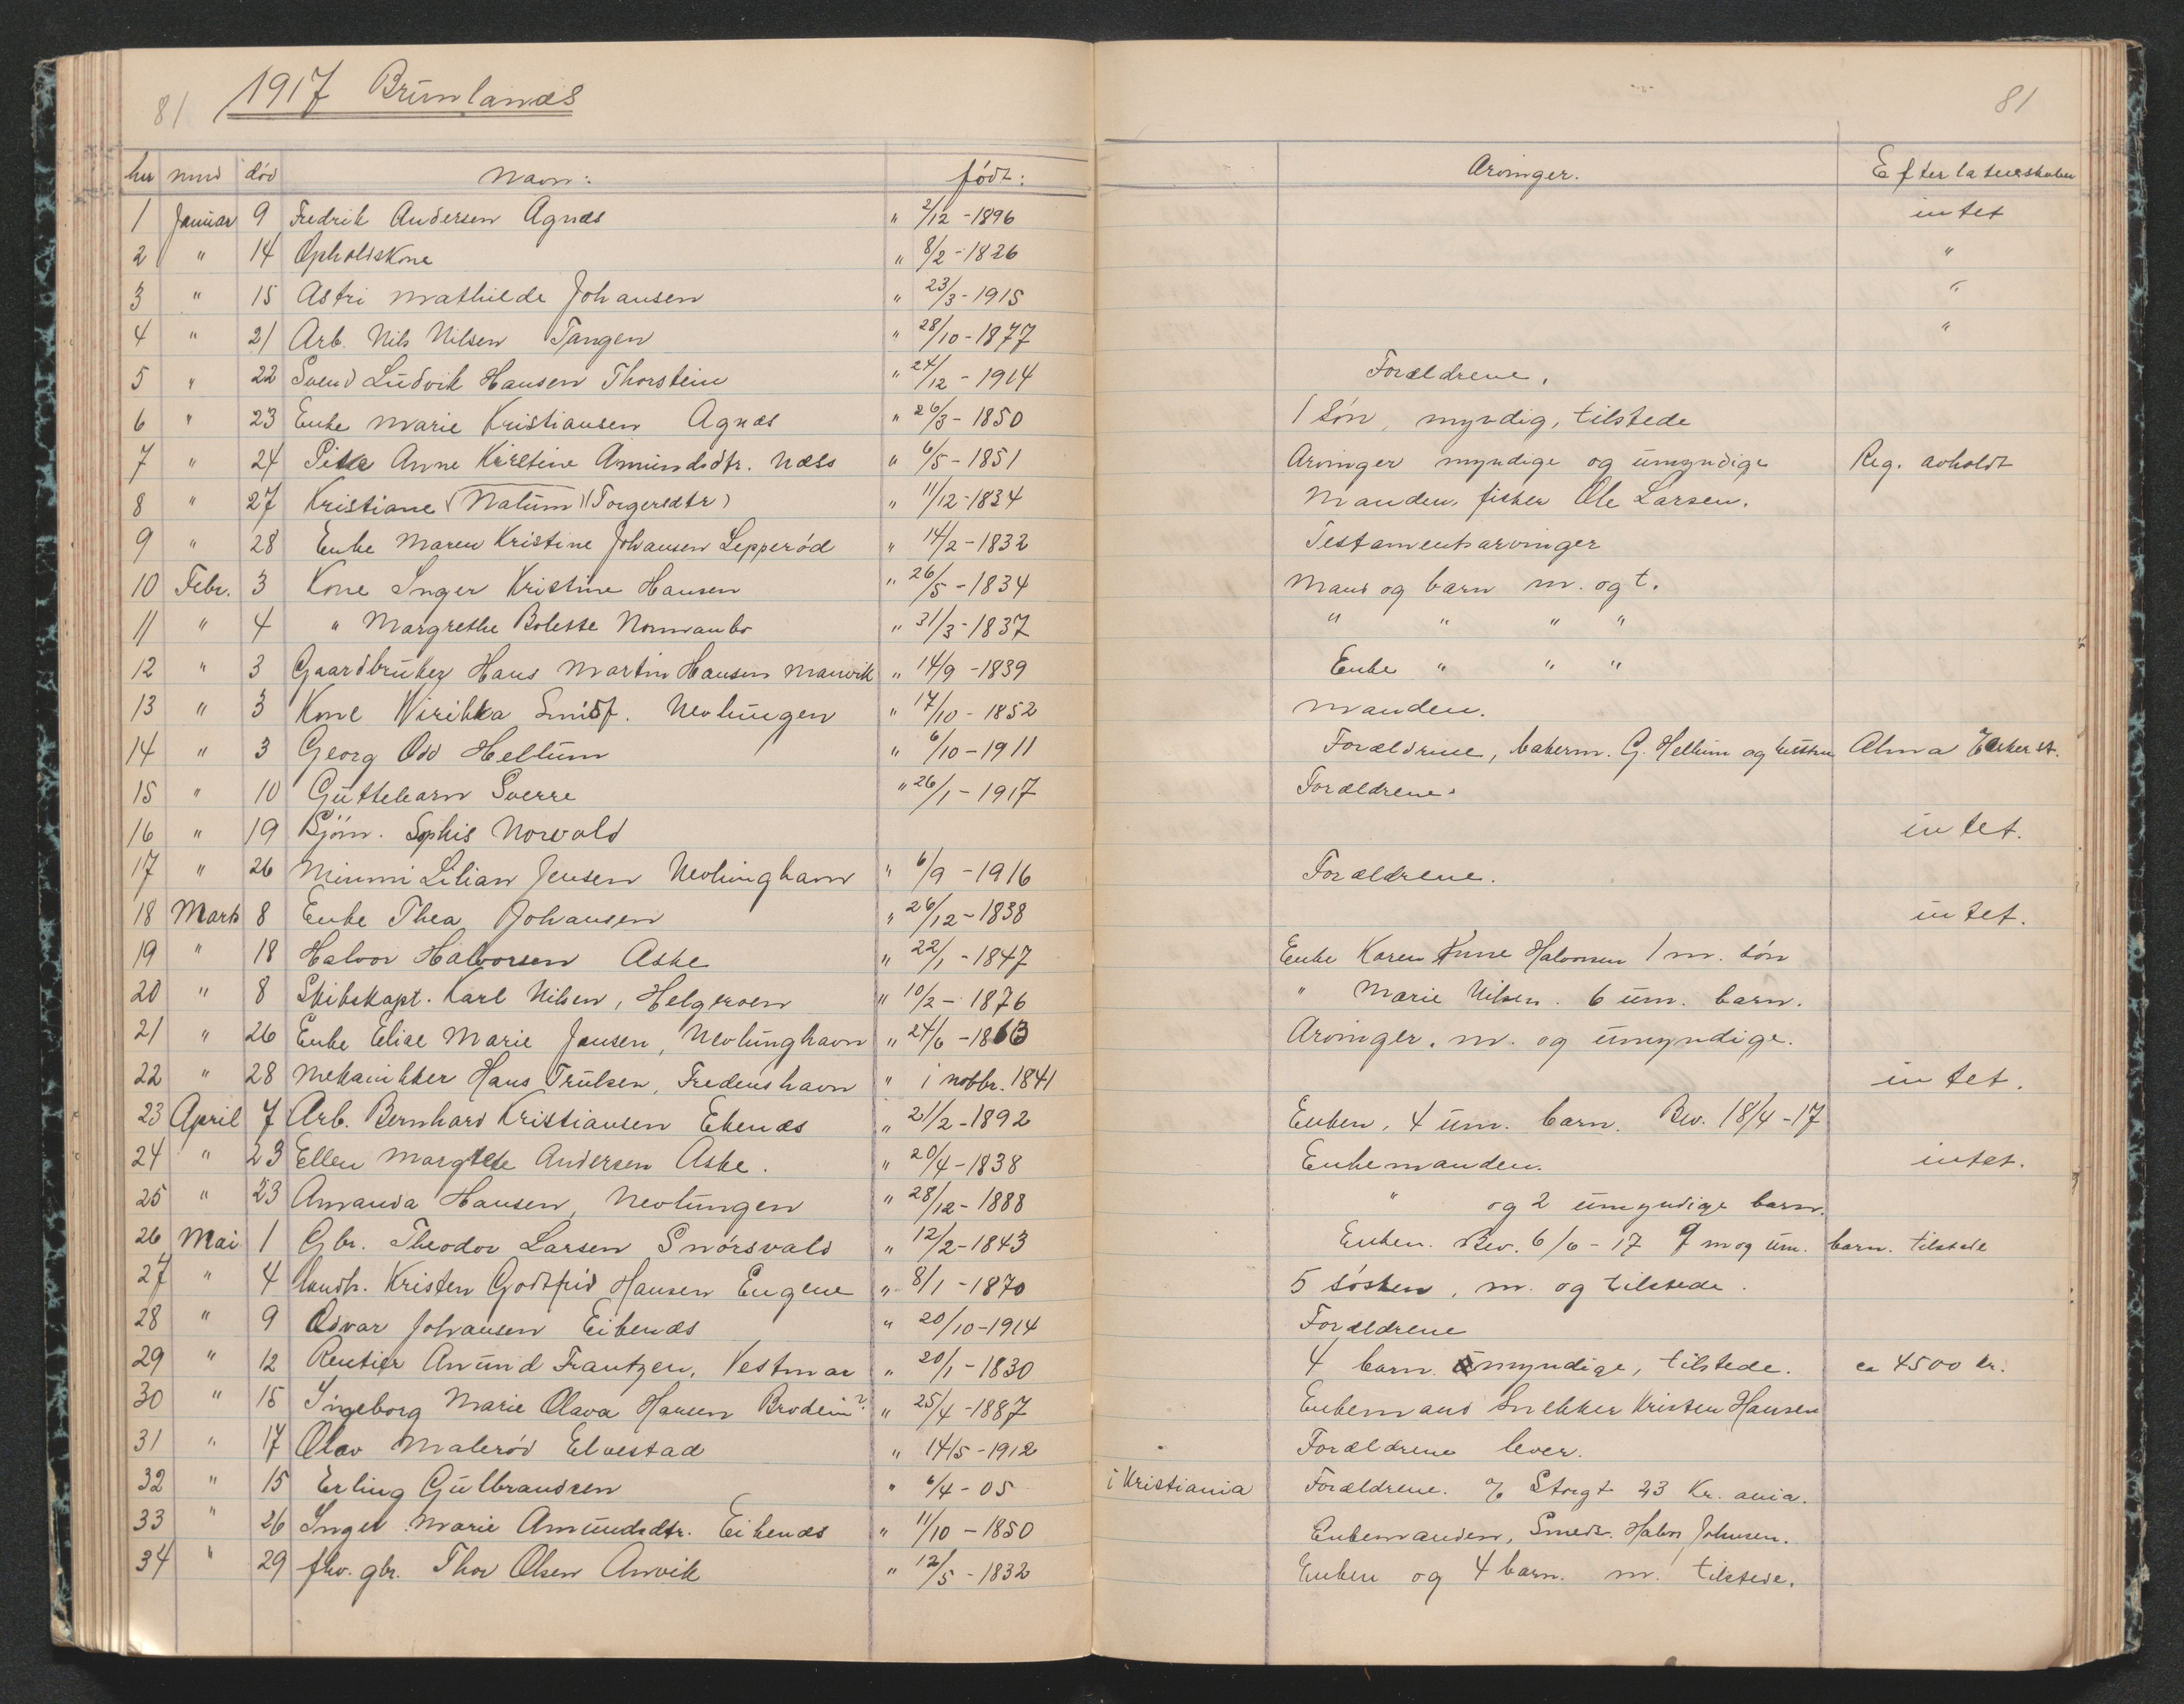 81 1917 Brunlanæs 81
hr mnd död Navn: født: Arvinger. Efterlatenskaber
1 Januar 9 Fredrik Andersen Agnæs " 2/12 - 1896 intet
2 " 14 Opholdskone " 8/2 - 1826 "
3 " 15 Astri Mathilde Johansen " 23/3 - 1915 "
4 " 21 Arb. Nils Nilsen Tangen " 28/10 - 1877 "
5 " 22 Svend Ludvik Hansen Thorstein " 24/12 - 1914 Forældrene.
6 " 23 Enke Marie Kristiansen Agnæs " 26/3 - 1850 1 søn, myndig, tilstede
7 " 24 Pike Anne Kirstine Amundsdtr. Næss " 6/5 - 1851 Arvinger myndige og umyndige Reg. avholdt
8 " 27 Kristiane (Nalum) (Torgersdtr) " 11/12 - 1834 Manden, fisker Ole Larsen.
9 " 28 Enke Maren Kristine Johansen Lepperød " 14/2 - 1832 Testamentsarvinger
10 Febr. 3 Kone Inger Kristine Hansen " 26/5 - 1834 Mand og barn m. og t.
11 " 4 " Margrethe Bolette Nomanbo " 31/3 - 1837 " " " "
12 " 3 Gaardbruker Hans Martin Hansen Manvik " 14/9 - 1839 Enke " " "
13 " 3 Kone Nevlungen " 17/10 - 1852 Manden.
14 " 3 Georg Odd Hellum " 6/10 - 1911 Forældrene, bakerm. G. Hellum og hustru Alma
15 " 10 Guttebarn Sverre " 26/1 - 1917 Forældrene.
16 " 19 Sjøm. Sophis Norvald intet.
17 " 26 Mimmi Lilian Jensen Nevlunghavn " 6/9 - 1916 Forældrene.
18 Marts 8 Enke Thea Johansen " 26/12 - 1838 intet.
19 " 18 Halvor Halvorsen Aske " 22/1 - 1847 Enke Karen Anne Halvorsen 1 m. søn
20 " 8 Skibskapt. Karl Nilsen, Helgeroen " 10/2 - 1876 " Marie Nilsen. 6 um. barn.
21 " 26 Enke Elise Marie Jensen, Nevlunghavn " 24/6 - 1863 Arvinger. m. og umyndige.
22 " 28 Mekanikker Hans Trulsen, Fredenshavn " i novbr. 1841 intet.
23 April 7 Arb. Bernhard Kristiansen Ekenæs " 21/2 - 1892 Enken, 4 um. barn. Bev. 18/4 - 17
24 " 23 Ellen Margrete Andersen Aske. " 20/4 - 1838 Enkemanden. intet.
25 " 23 Amanda Hansen, Nevlungen " 28/12 - 1888 " og 2 umyndige barn.
26 Mai 1 Gbr. Theodor Larsen Snørsvald " 12/2 - 1843 Enken. Bev. 6/6 - 17 9 m og um. barn. tilstede
27 " 4 landh. Kristen Godtfrid Hansen Eugene " 8/1 - 1870 5 søsken, m. og tilstede.
28 " 9 Odvar Johansen Eikenæs " 20/10 - 1914 Forældrene
29 " 12 Rentier Amund Frantzen, Vestmar " 20/1 - 1830 4 barn. myndige, tilstede. ca 4500 kr.
30 " 15 Ingeborg Marie Olava Hansen Brodein? " 25/4 - 1887 Enkemand Snekker Kristen Hansen
31 " 17 Olav Malerød Elvestad " 14/5 - 1912 Forældrene lever.
32 " 15 Erling Gulbrandsen " 6/4 - 05 i Kristiania Forældrene. % Storgt 23 Kr.ania.
33 " 26 Inger Marie Amundsdtr. Eikenæs " 11/10 - 1850 Enkemanden, Smed Halvor Johnsen.
34 " 29 fhv. gbr. Thor Olsen Anvik " 12/5 - 1832 Enken og 4 barn. m. tilstede.